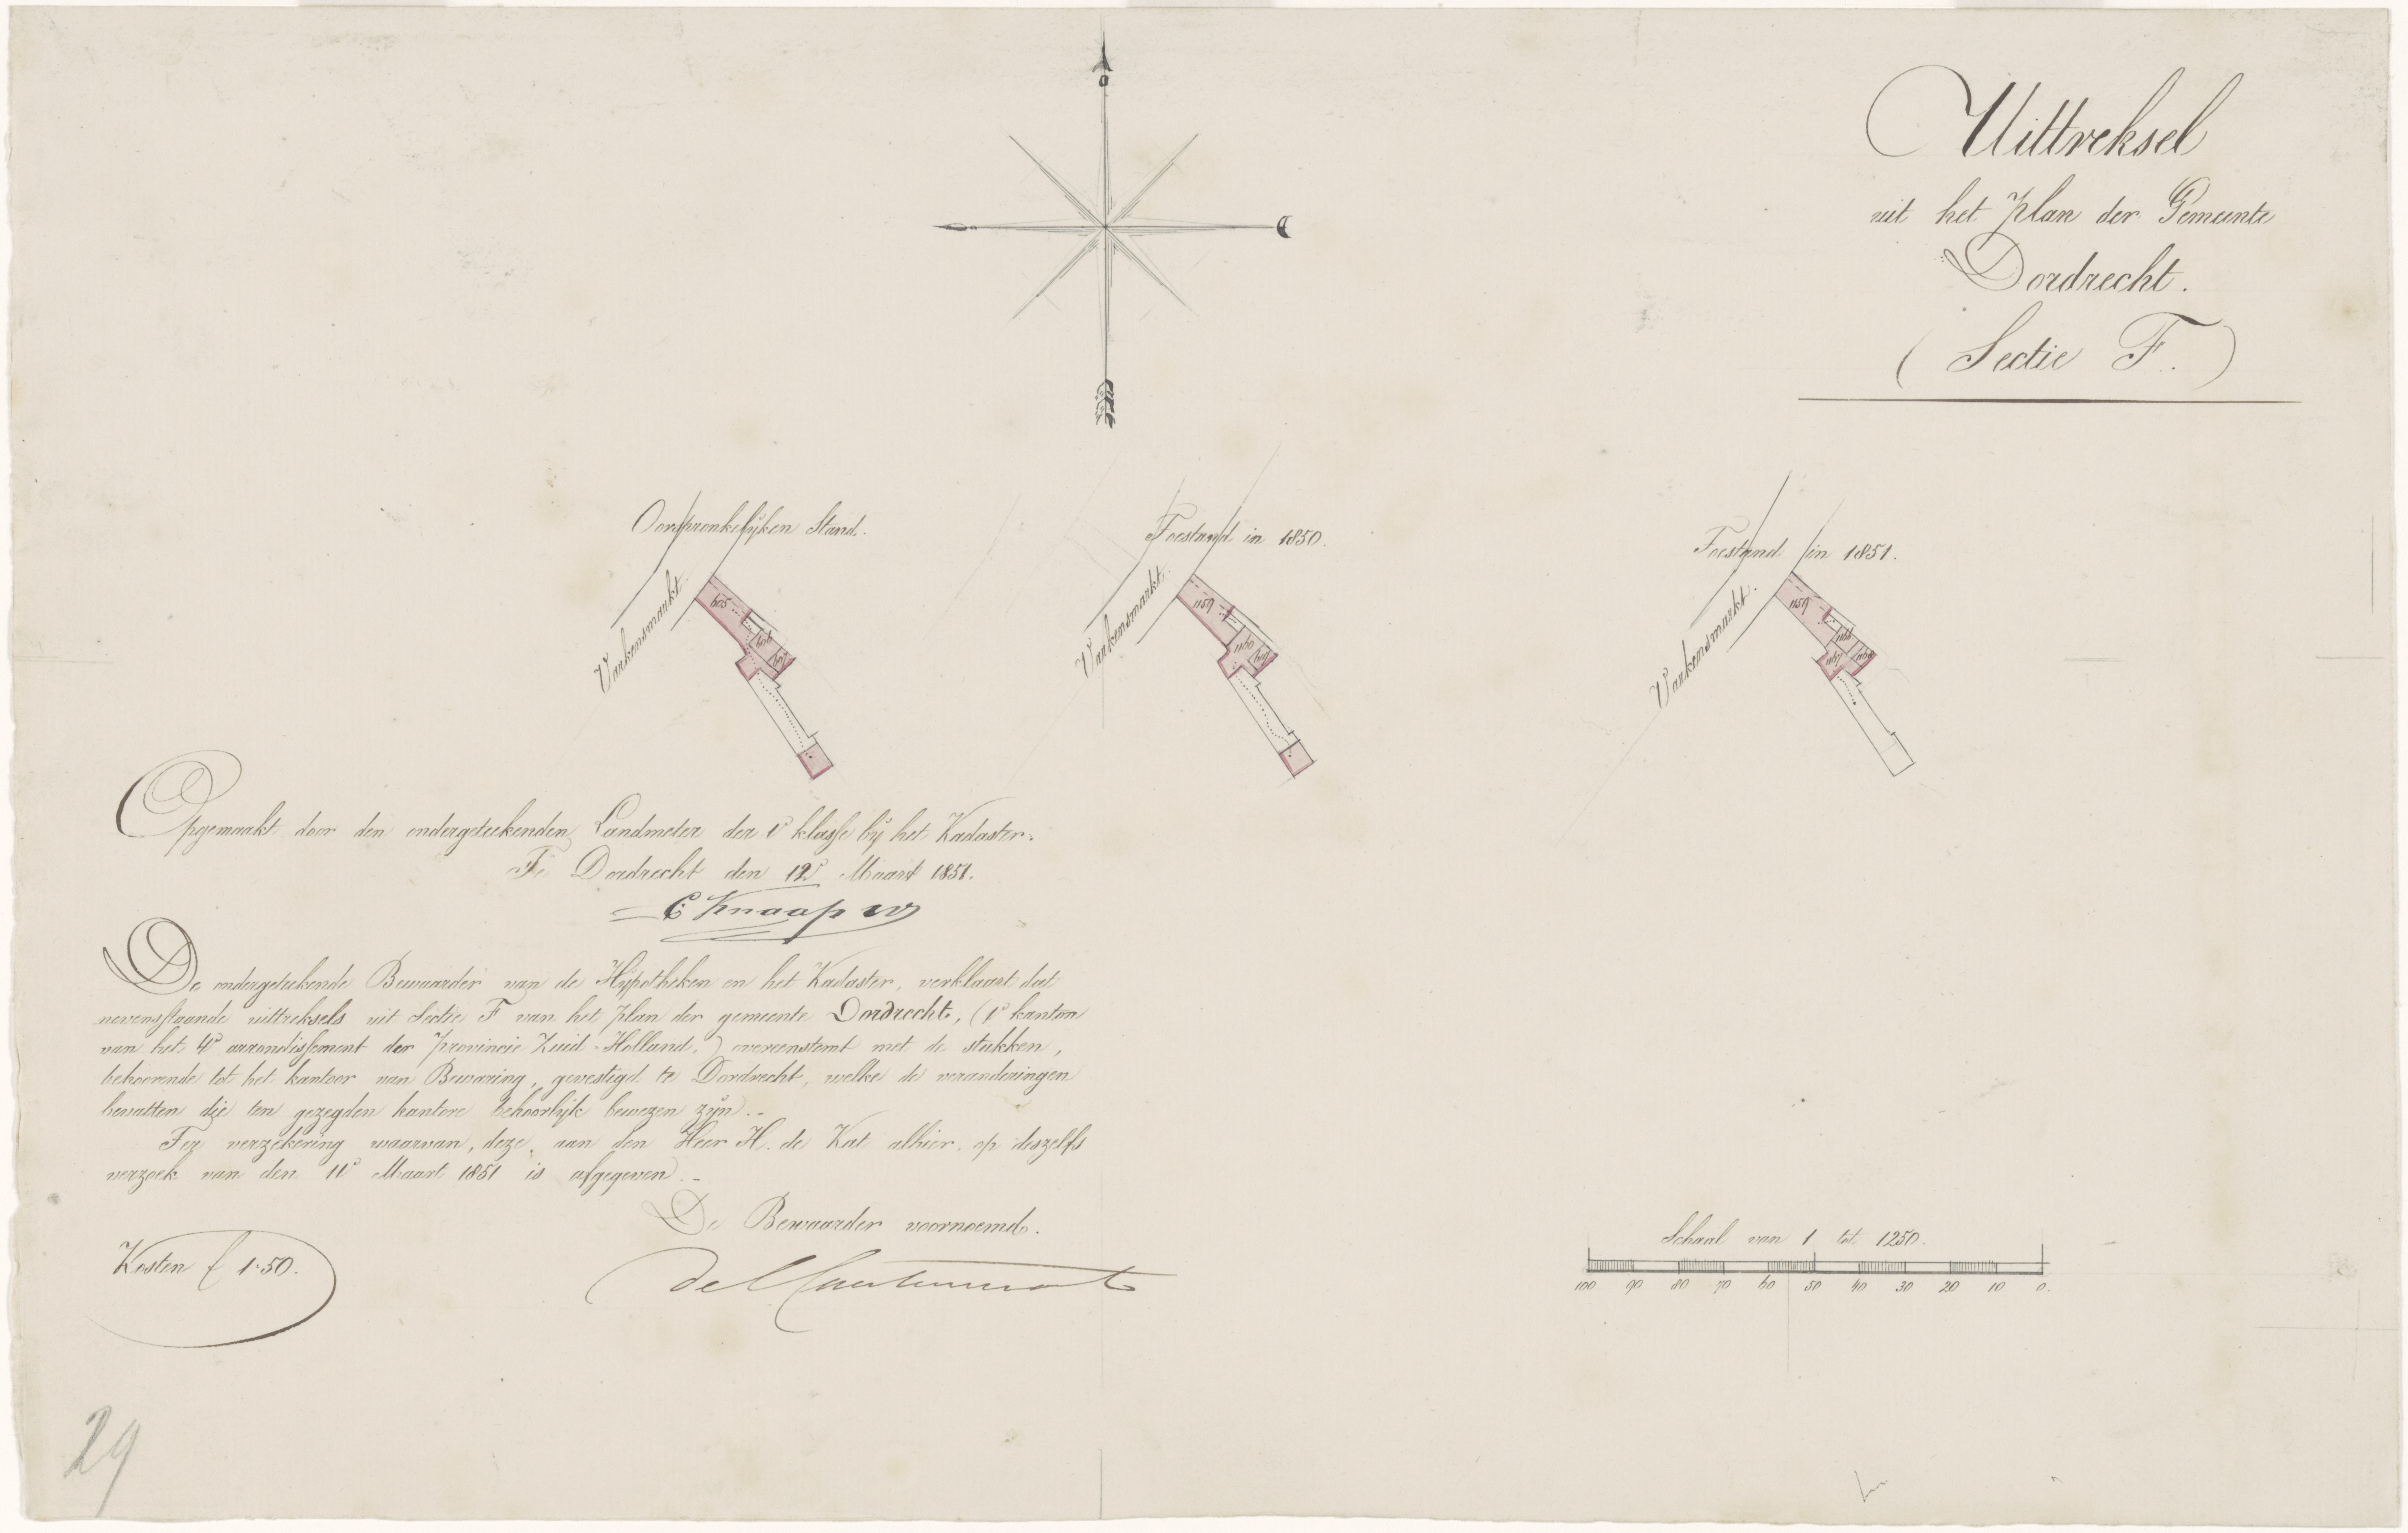 Uittreksel
uit het plan der Gemeente
Dordrecht.
( Sectie F. )
Oorspronkelijken Stand.
Varkensmarkt.
605
606
607
Toestand in 1850.
Varkensmarkt.
1159
1160
607
Toestand in 1851.
Varkensmarkt.
1159
Opgemaakt door den ondergeteekenden Landmeter der 1e klasse bij het Kadaster.
Te Dordrecht den 12e Maart 1851.
C Knaap
De ondergeteekende Bewaarder van de Hypotheken en het Kadaster, verklaart dat
nevensstaande uittreksels uit Sectie F van het plan der gemeente Dordrecht, (1e kanton
van het 4e arrondissement der Provincie Zuid-Holland,) overeenstemt met de stukken,
behoorende tot het kantoor van Bewaring, gevestigd te Dordrecht, welke de veranderingen
bevatten die ten gezegden kantore behoorlijk bewezen zijn.-
Ter verzekering waarvan, deze, aan den Heer H. de Kat alhier, op deszelfs
verzoek van den 11e Maart 1851 is afgegeven.-
De Bewaarder voornoemd.
Kosten f 1.50.
Schaal van 1 tot 1250.
100 90 80 70 60 50 40 30 20 10 0.
29